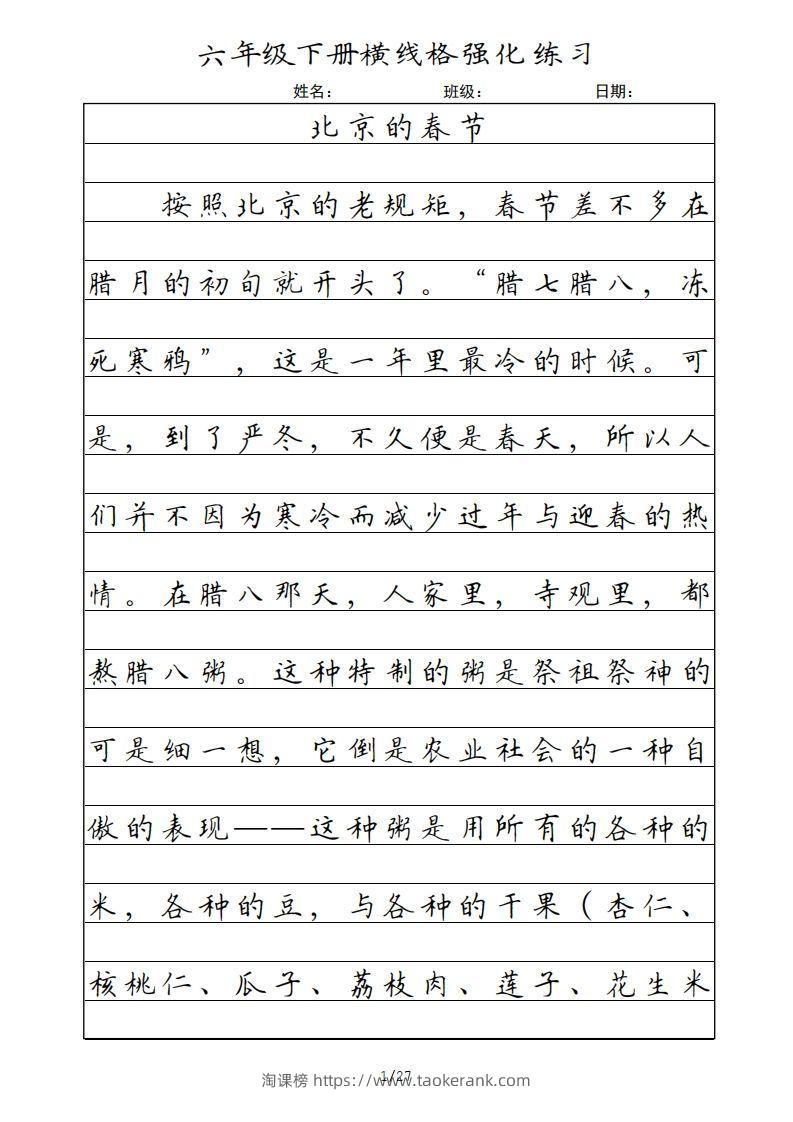 六年级下册横线格强化练习
姓名： 班级： 日期：
北京的春节
按照北京的老规矩，春节差不多在
腊月的初旬就开头了。“腊七腊八，冻
死寒鸦”，这是一年里最冷的时候。可
是，到了严冬，不久便是春天，所以人
们并不因为寒冷而减少过年与迎春的热
情。在腊八那天，人家里，寺观里，都
熬腊八粥。这种特制的粥是祭祖祭神的
可是细一想，它倒是农业社会的一种自
傲的表现——这种粥是用所有的各种的
米，各种的豆，与各种的干果（杏仁、
核桃仁、瓜子、荔枝肉、莲子、花生米
1/27
淘课榜 https://www.taokerank.com